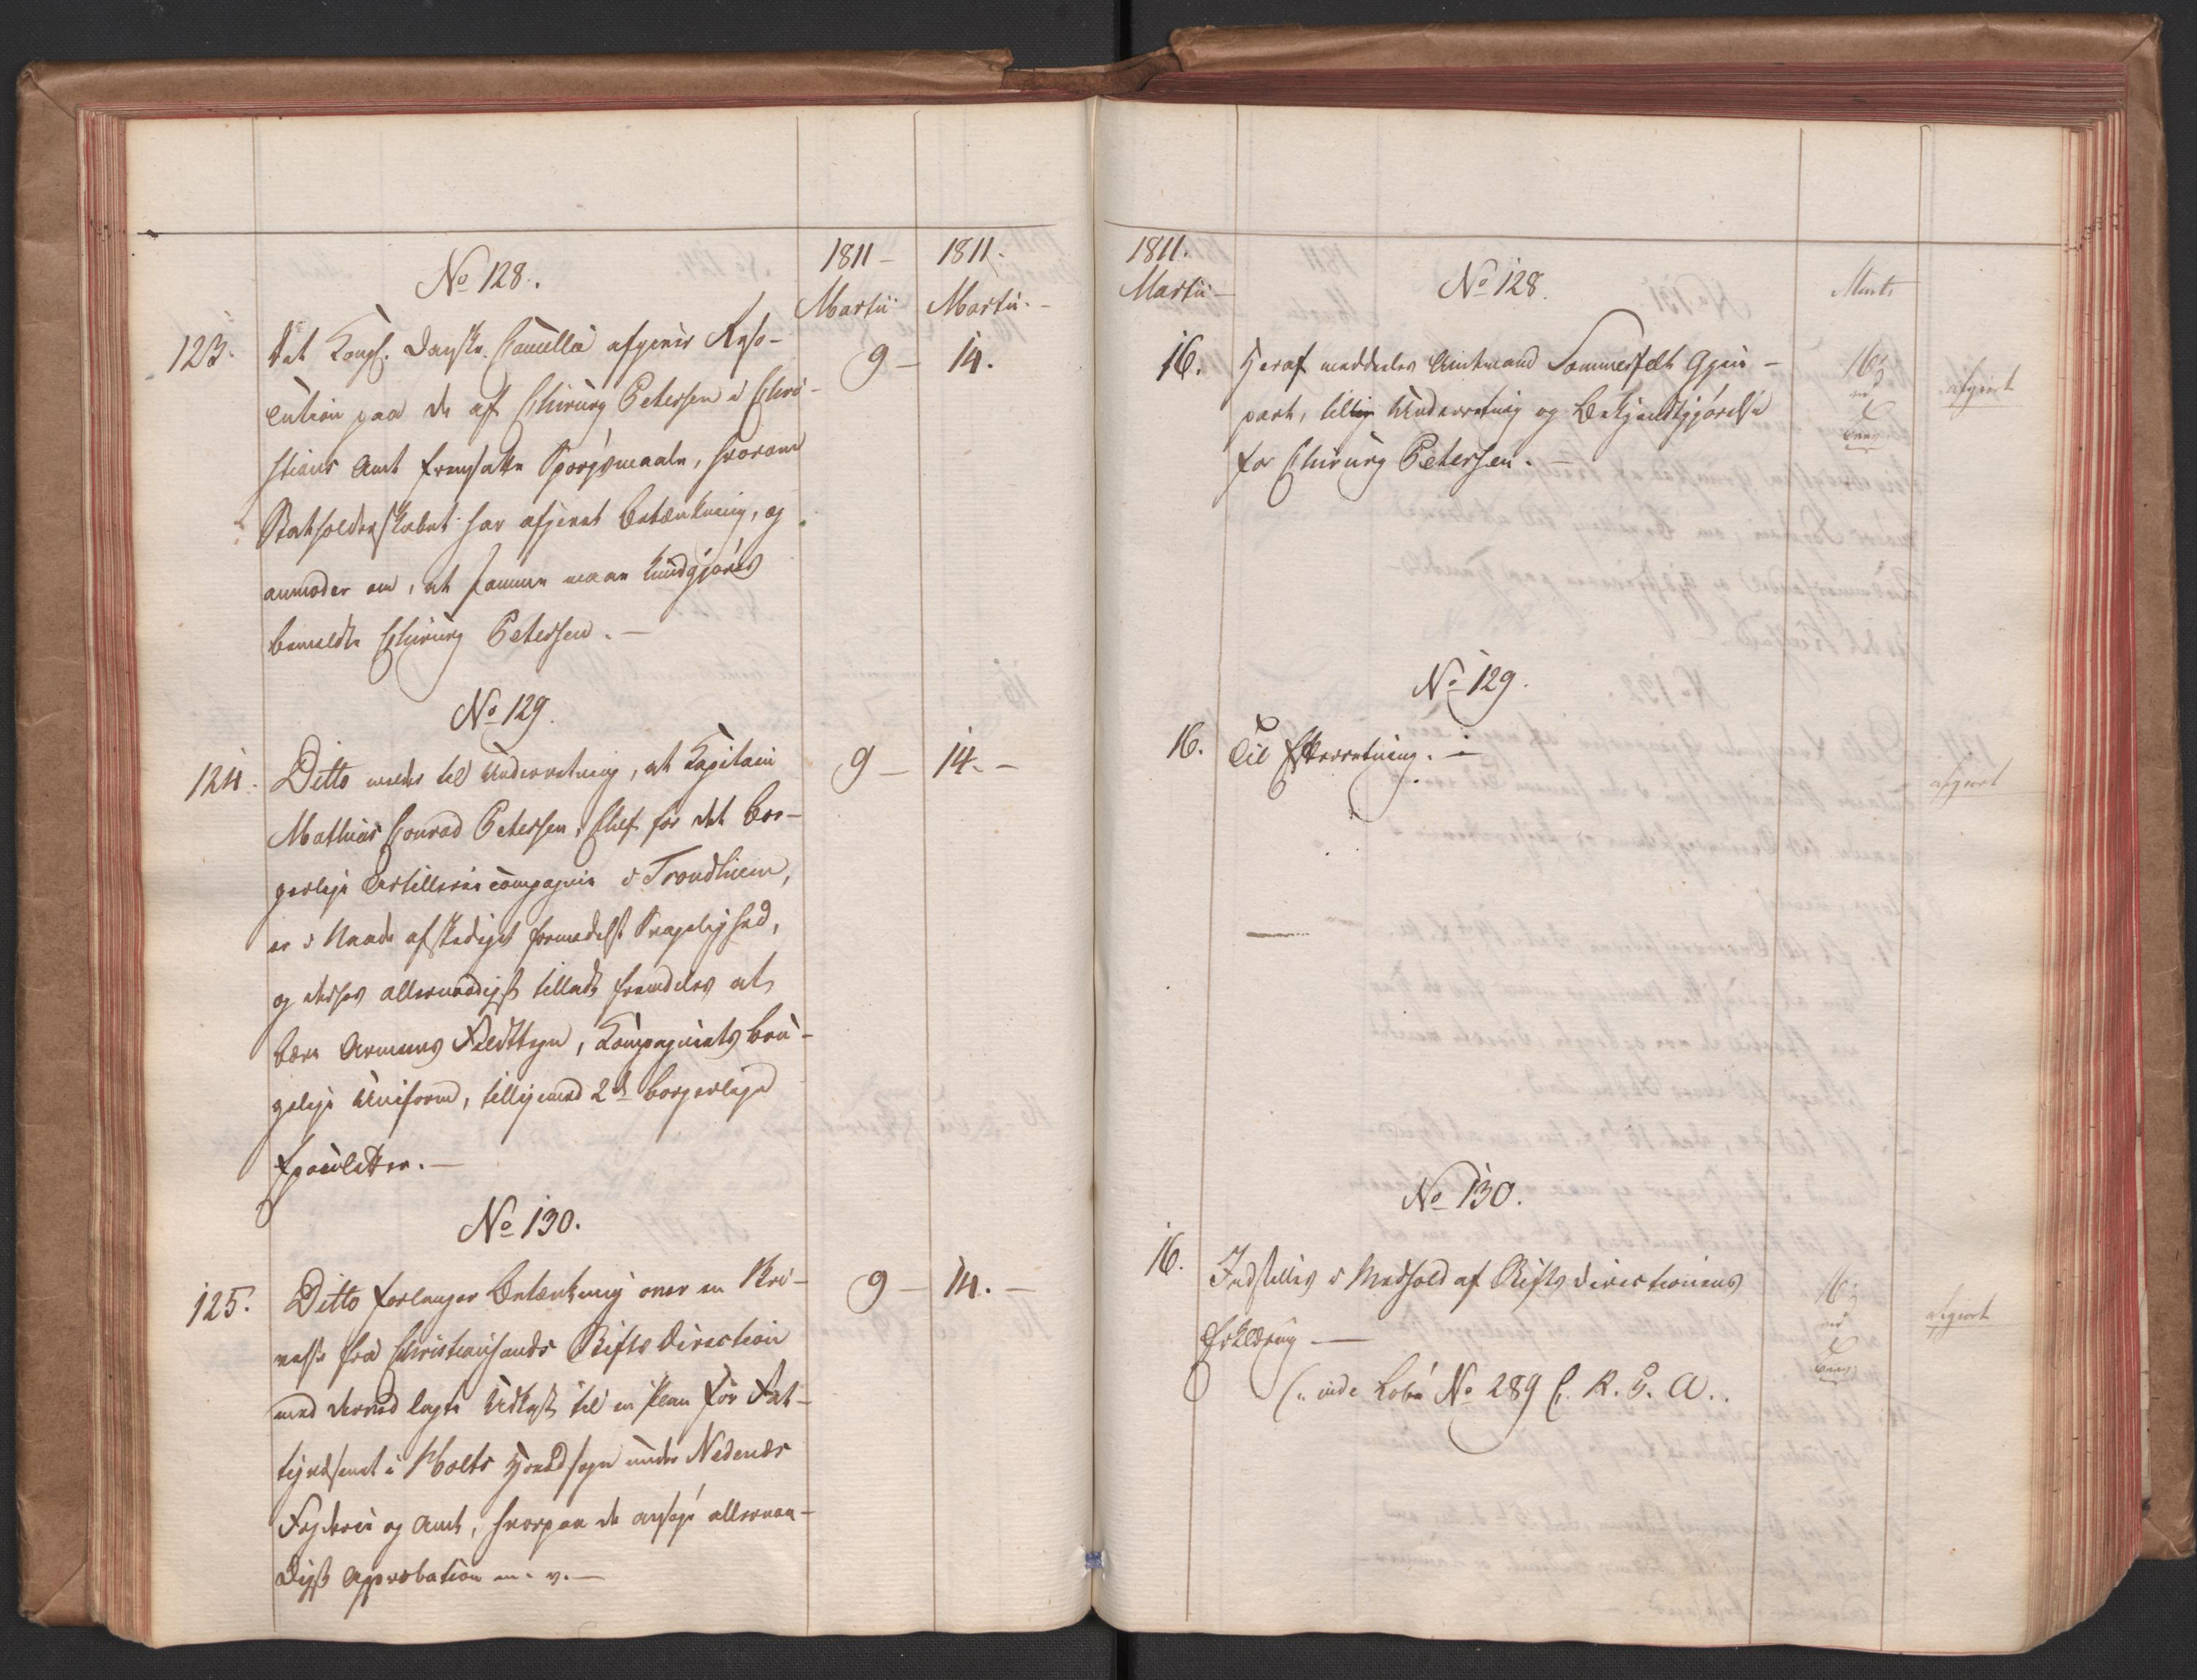 1811 –
1811.
Martii
Martii. –
No 128.
123.
Det Kongl. Danske Cancellie afgiver Reso-
9 –
14.
lution paa de af Chirurg Petersen i Chri-
stians Amt fremsatte Spørgsmaale, hvorom
Statholderskabet har afgivet Betænkning, og
anmoder om, at samme maae kundgjøres
bemeldte Chirurg Petersen. –
No 129.
124.
Ditto melder til Underretning, at Kapitain
9 –
14. –
Mathias Conrad Petersen, Chef for det bor-
gerlige Artilleriecompagnie i Trondhiem,
er i Naade afskediget formedelst Svagelighed,
og derhos allernaadigst tilladt fremdeles at
bære Armeens Feldttegn, Kompagniets bru-
gelige Uniform, tilligemed 2de borgerlige
Epauletter. –
No 130.
125.
Ditto forlanger Betænkning over en Skri-
9 –
14. –
velse fra Christiansands Stiftsdirection
med derved lagte Udkast til en Plan for Fat-
tigvæsenet i Holts Præstegjeld under Nedenæs
Fogderie og Amt, hvorpaa de ansøge allernaa-
digst Approbation m. v. –
1811.
Martii –
No 128.
Marti
16.
Heraf meddeles Amtmand Sommerfelt Gjen-
16
afgjort
part, til Underretning og Bekjendtgjørelse
for Chirurg Petersen. –
No 129.
16.
Til Efterretning. –
afgjort
No 130.
16.
Indstilles i Medhold af Stiftsdirectionens
16
afgjort
Erklæring –
(:. vide Kobi No 289 C. R. S. A.